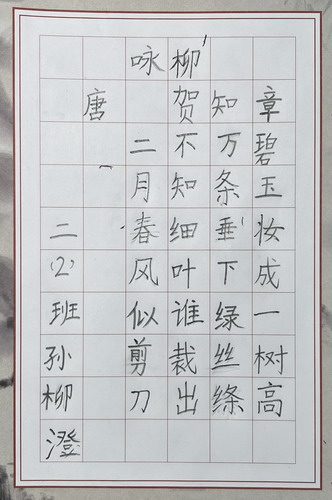 咏柳
唐 贺知章
碧玉妆成一树高
万条垂下绿丝绦
不知细叶谁裁出
二月春风似剪刀
二(2)班孙柳澄